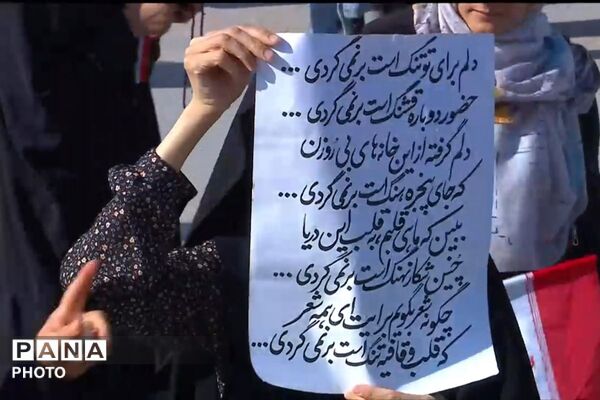 دلم برای تو تنگ است برنمی‌گردی ...
حضور دوباره قشنگ است برنمی‌گردی ...
دلم گرفته از این خانه‌های بی روزن
که جای پنجره هنگ است برنمی‌گردی ...
ببین که ماهی قلبم به قلب این دریا
چنین شکار نهنگ است برنمی‌گردی ...
چگونه شعر بگویم برایت ای همه شعر
که قلب و قافیه تنگ است برنمی‌گردی ...
PANA
PHOTO